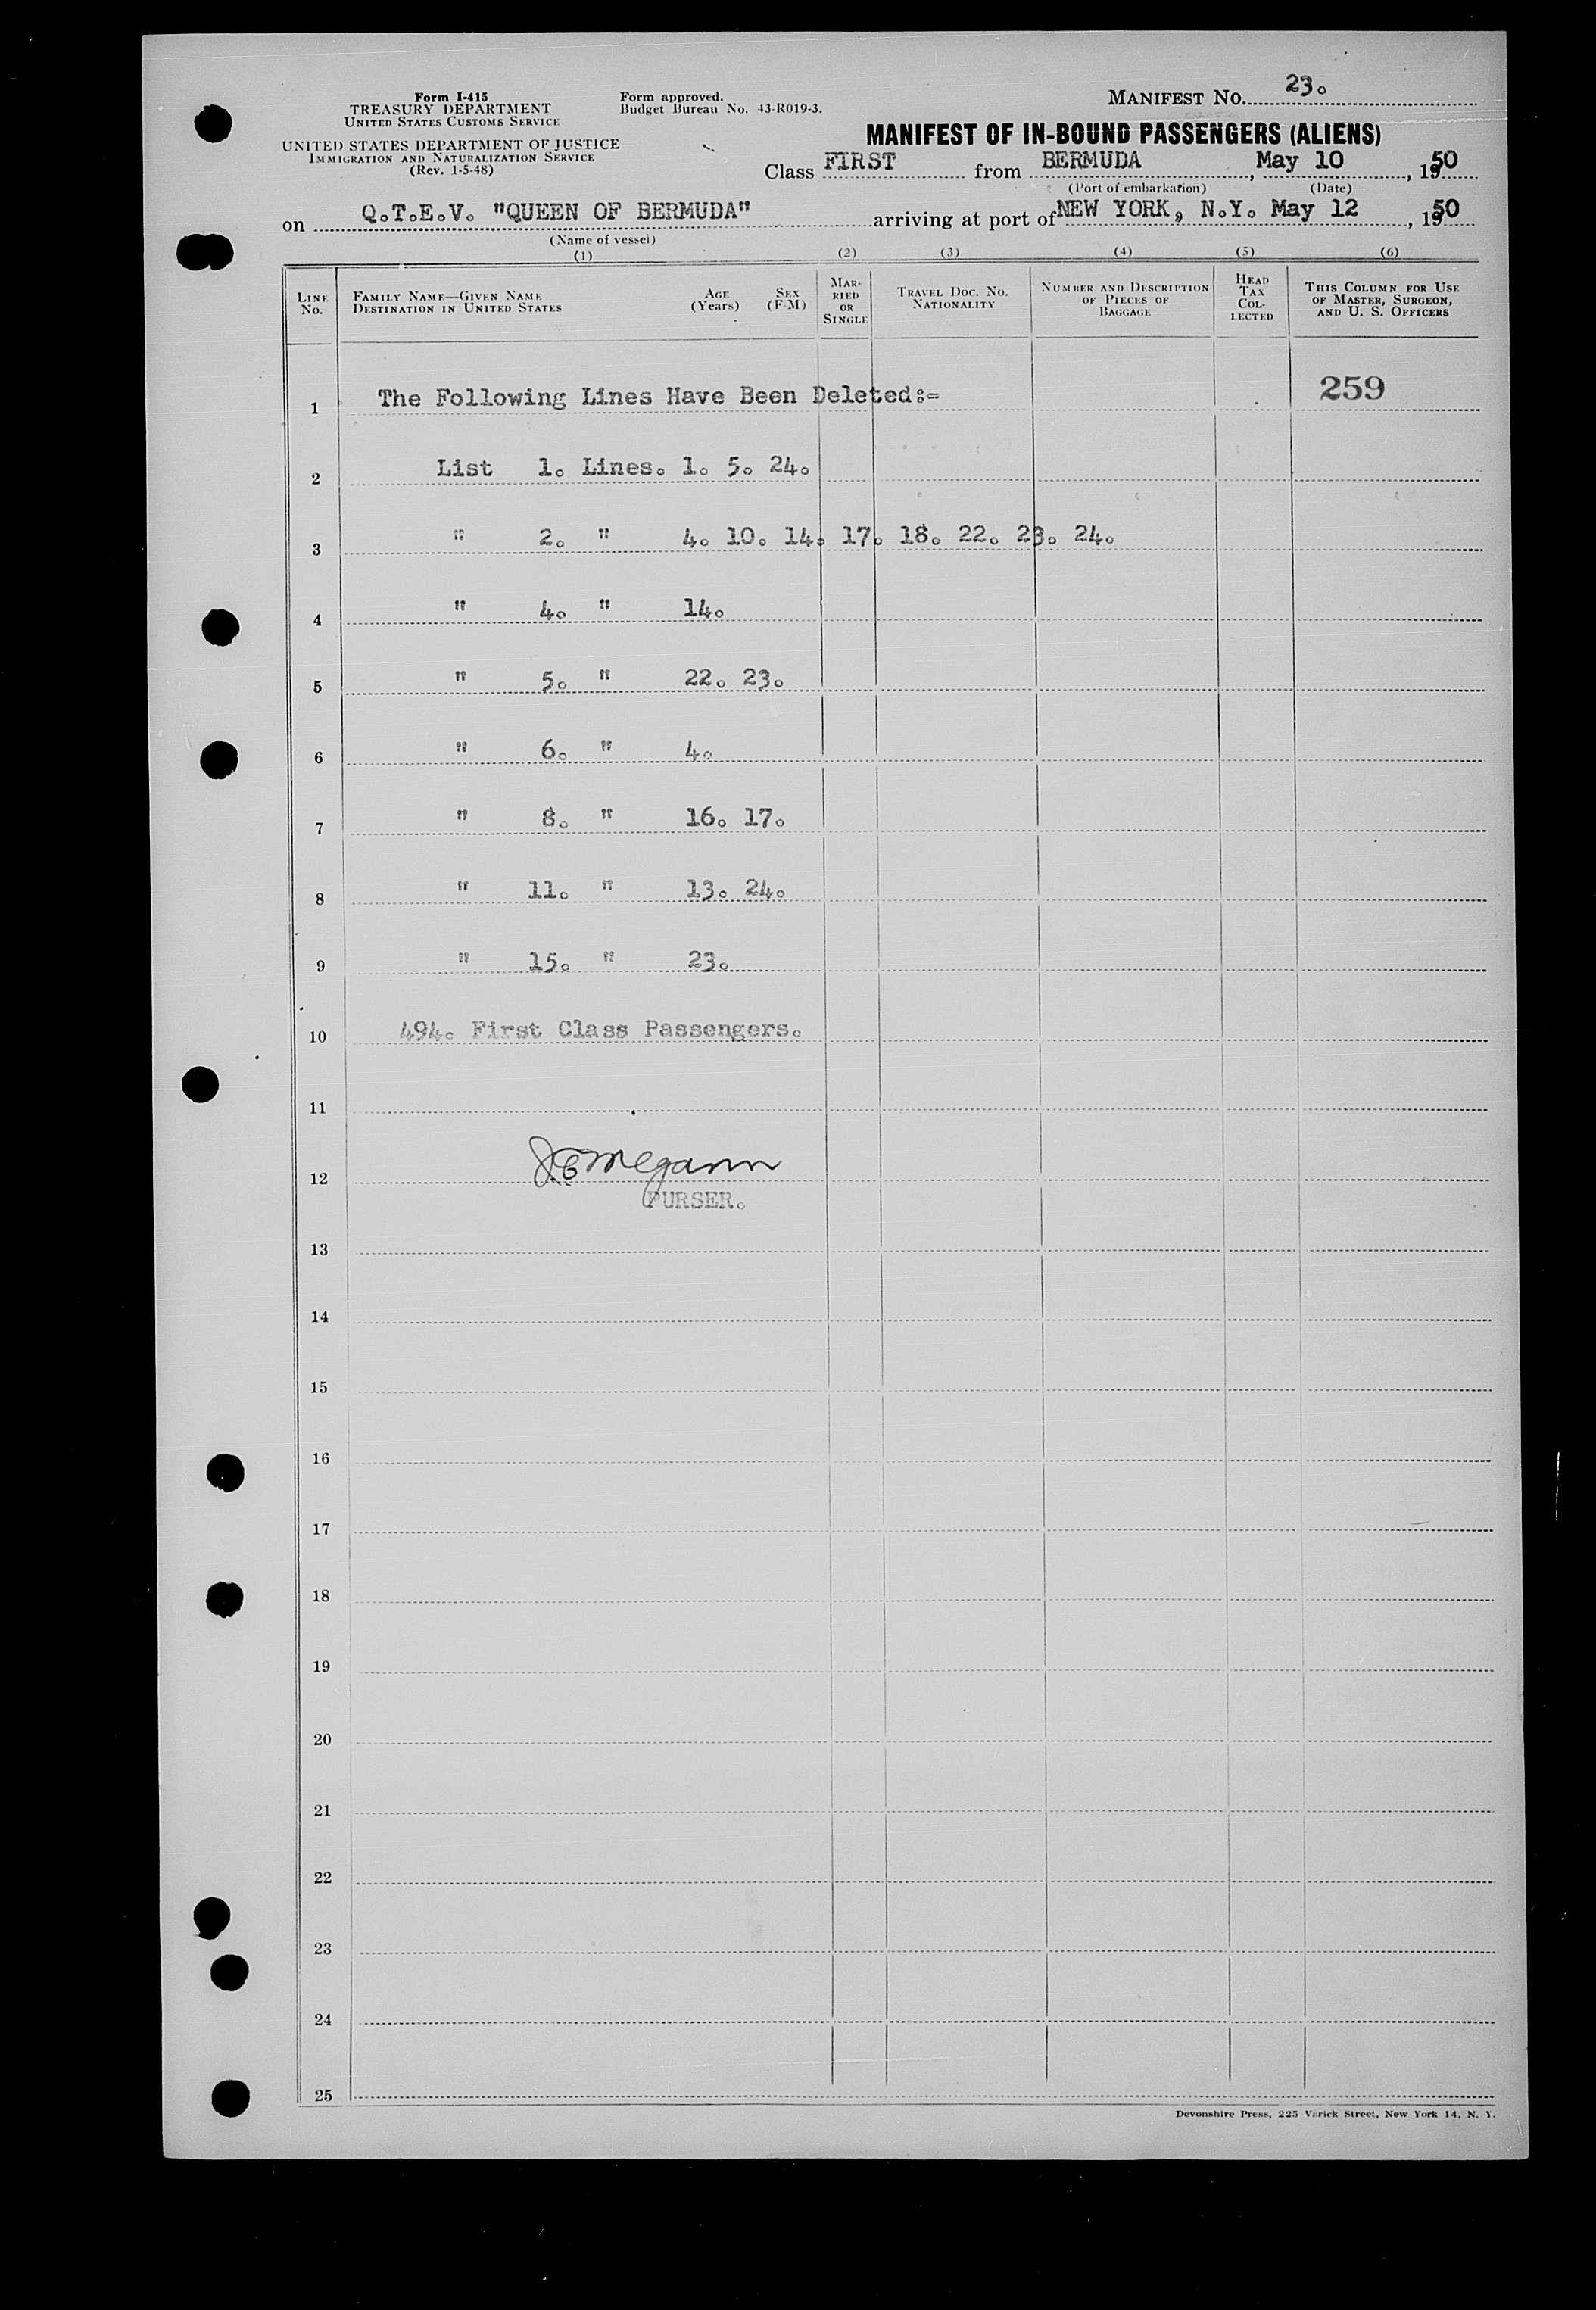 Form I-415
TREASURY DEPARTMENT
UNITED STATES CUSTOMS SERVICE
UNITED STATES DEPARTMENT OF JUSTICE
IMMIGRATION AND NATURALIZATION SERVICE
(Rev. 1-5-48)
Form approved.
Budget Bureau No. 43-R019-3.
MANIFEST No. 23.
MANIFEST OF IN-BOUND PASSENGERS (ALIENS)
Class FIRST from BERMUDA, May 10, 1950
(Port of embarkation) (Date)
on Q.T.E.V. "QUEEN OF BERMUDA" arriving at port of NEW YORK, N.Y. May 12, 1950
(Name of vessel)
(1) (2) (3) (4) (5) (6)
LINE No.
FAMILY NAME—GIVEN NAME
DESTINATION IN UNITED STATES
AGE (Years)
SEX (F-M)
MARRIED OR SINGLE
TRAVEL DOC. NO. NATIONALITY
NUMBER AND DESCRIPTION OF PIECES OF BAGGAGE
HEAD TAX COLLECTED
THIS COLUMN FOR USE OF MASTER, SURGEON, AND U. S. OFFICERS
1 The Following Lines Have Been Deleted:- 259
2 List 1. Lines. 1. 5. 24.
3 " 2. " 4. 10. 14. 17. 18. 22. 23. 24.
4 " 4. " 14.
5 " 5. " 22. 23.
6 " 6. " 4.
7 " 8. " 16. 17.
8 " 11. " 13. 24.
9 " 15. " 23.
10 494. First Class Passengers.
11
12 J.C. Megann
PURSER.
13
14
15
16
17
18
19
20
21
22
23
24
25
Devonshire Press, 225 Varick Street, New York 14, N. Y.